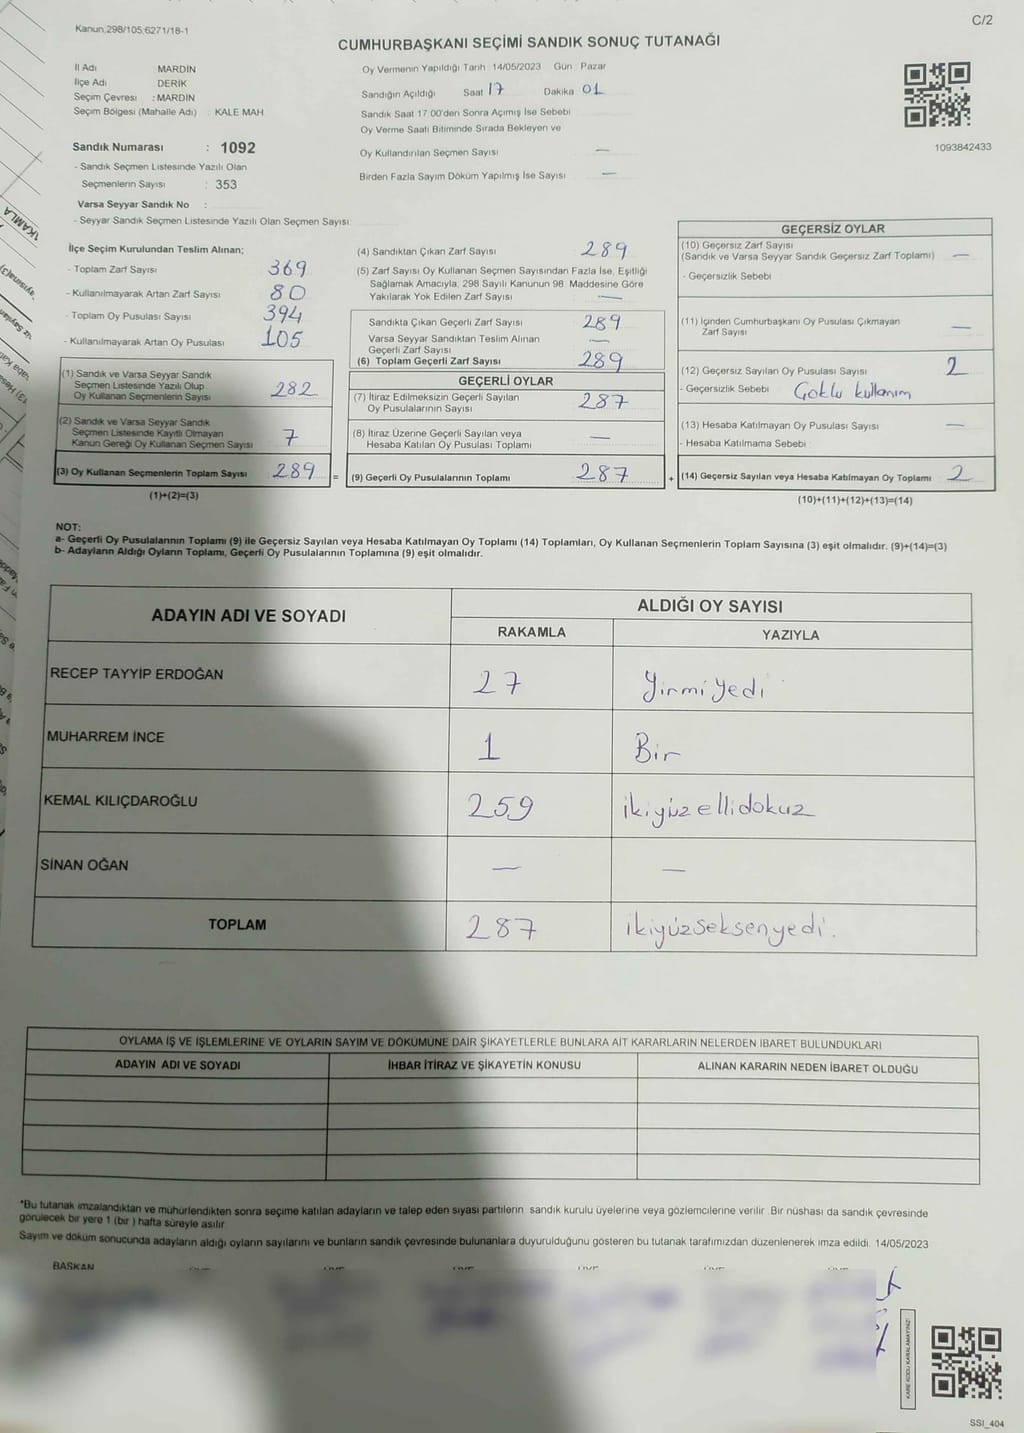 Kanun;298/105;6271/18-1
C/2
CUMHURBAŞKANI SEÇİMİ SANDIK SONUÇ TUTANAĞI
İl Adı MARDİN
İlçe Adı DERİK
Seçim Çevresi : MARDİN
Seçim Bölgesi (Mahalle Adı) : KALE MAH
Sandık Numarası : 1092
- Sandık Seçmen Listesinde Yazılı Olan
Seçmenlerin Sayısı : 353
Varsa Seyyar Sandık No :
- Seyyar Sandık Seçmen Listesinde Yazılı Olan Seçmen Sayısı:
Oy Vermenin Yapıldığı Tarih : 14/05/2023 Gün : Pazar
Sandığın Açıldığı Saat 17 Dakika 01
Sandık Saat 17:00'den Sonra Açımış İse Sebebi
Oy Verme Saati Bitiminde Sırada Bekleyen ve
Oy Kullandırılan Seçmen Sayısı —
Birden Fazla Sayım Döküm Yapılmış İse Sayısı —
1093842433
İlçe Seçim Kurulundan Teslim Alınan;
- Toplam Zarf Sayısı 369
- Kullanılmayarak Artan Zarf Sayısı 80
- Toplam Oy Pusulası Sayısı 394
- Kullanılmayarak Artan Oy Pusulası 105
(1) Sandık ve Varsa Seyyar Sandık
Seçmen Listesinde Yazılı Olup
Oy Kullanan Seçmenlerin Sayısı 282
(2) Sandık ve Varsa Seyyar Sandık
Seçmen Listesinde Kayıtlı Olmayan
Kanun Gereği Oy Kullanan Seçmen Sayısı 7
(3) Oy Kullanan Seçmenlerin Toplam Sayısı 289 =
(1)+(2)=(3)
(4) Sandıktan Çıkan Zarf Sayısı 289
(5) Zarf Sayısı Oy Kullanan Seçmen Sayısından Fazla İse, Eşitliği
Sağlamak Amacıyla; 298 Sayılı Kanunun 98. Maddesine Göre
Yakılarak Yok Edilen Zarf Sayısı —
Sandıkta Çıkan Geçerli Zarf Sayısı 289
Varsa Seyyar Sandıktan Teslim Alınan
Geçerli Zarf Sayısı —
(6) Toplam Geçerli Zarf Sayısı 289
GEÇERLİ OYLAR
(7) İtiraz Edilmeksizin Geçerli Sayılan
Oy Pusulalarının Sayısı 287
(8) İtiraz Üzerine Geçerli Sayılan veya
Hesaba Katılan Oy Pusulası Toplamı —
(9) Geçerli Oy Pusulalarının Toplamı 287 +
GEÇERSİZ OYLAR
(10) Geçersiz Zarf Sayısı
(Sandık ve Varsa Seyyar Sandık Geçersiz Zarf Toplamı) —
- Geçersizlik Sebebi
(11) İçinden Cumhurbaşkanı Oy Pusulası Çıkmayan
Zarf Sayısı —
(12) Geçersiz Sayılan Oy Pusulası Sayısı 2
- Geçersizlik Sebebi Çoklu kullanım
(13) Hesaba Katılmayan Oy Pusulası Sayısı —
- Hesaba Katılmama Sebebi
(14) Geçersiz Sayılan veya Hesaba Katılmayan Oy Toplamı 2
(10)+(11)+(12)+(13)=(14)
NOT:
a- Geçerli Oy Pusulalarının Toplamı (9) ile Geçersiz Sayılan veya Hesaba Katılmayan Oy Toplamı (14) Toplamları, Oy Kullanan Seçmenlerin Toplam Sayısına (3) eşit olmalıdır. (9)+(14)=(3)
b- Adayların Aldığı Oyların Toplamı, Geçerli Oy Pusulalarının Toplamına (9) eşit olmalıdır.
ADAYIN ADI VE SOYADI
ALDIĞI OY SAYISI
RAKAMLA YAZIYLA
RECEP TAYYİP ERDOĞAN 27 Yirmi Yedi
MUHARREM İNCE 1 Bir
KEMAL KILIÇDAROĞLU 259 ikiyüz ellidokuz
SİNAN OĞAN — —
TOPLAM 287 ikiyüzseksenyedi.
OYLAMA İŞ VE İŞLEMLERİNE VE OYLARIN SAYIM VE DÖKÜMÜNE DAİR ŞİKAYETLERLE BUNLARA AİT KARARLARIN NELERDEN İBARET BULUNDUKLARI
ADAYIN ADI VE SOYADI İHBAR İTİRAZ VE ŞİKAYETİN KONUSU ALINAN KARARIN NEDEN İBARET OLDUĞU
*Bu tutanak imzalandıktan ve mühürlendikten sonra seçime katılan adayların ve talep eden siyasi partilerin sandık kurulu üyelerine veya gözlemcilerine verilir. Bir nüshası da sandık çevresinde
görülecek bir yere 1 (bir ) hafta süreyle asılır.
Sayım ve döküm sonucunda adayların aldığı oyların sayılarını ve bunların sandık çevresinde bulunanlara duyurulduğunu gösteren bu tutanak tarafımızdan düzenlenerek imza edildi. 14/05/2023
BAŞKAN
KARE KODU KARALAMAYINIZ
SSI_404